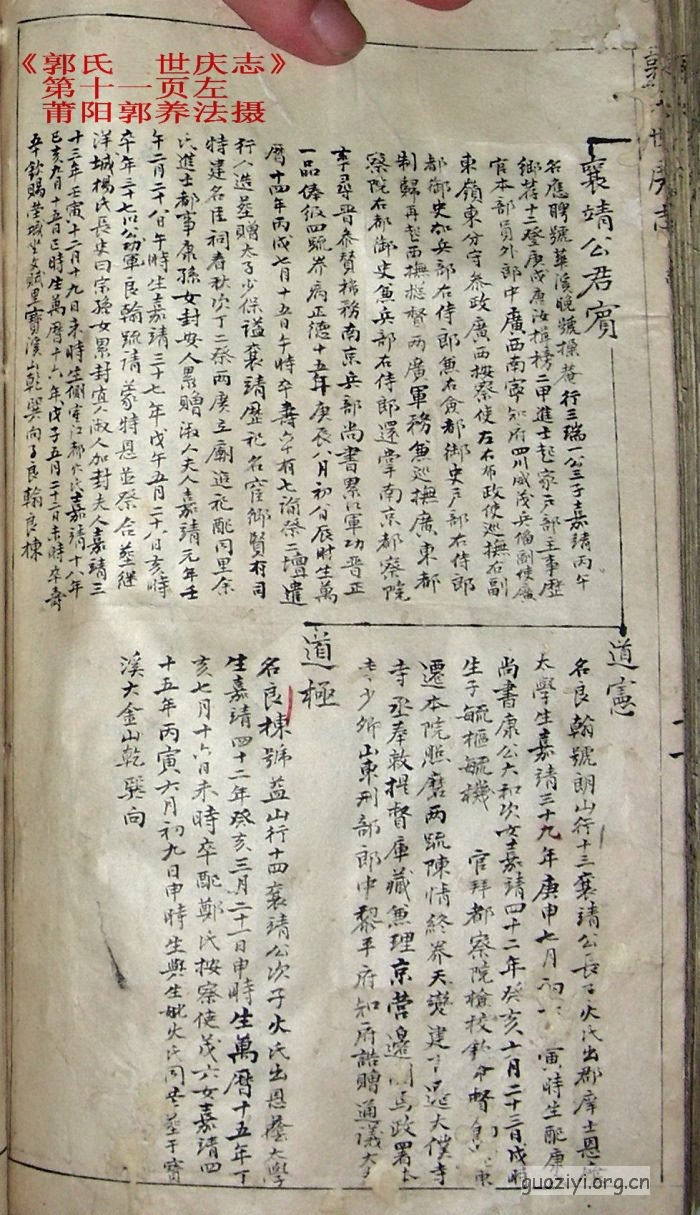 《郭氏 世庆志》
第十一页左
莆阳郭养法摄
世慶志
襄靖公君賓
名應聘號華溪晚號操菴行三瑞一公三子嘉靖丙午
鄉荐十二登庚戌唐汝楫榜二甲進士起家戶部主事歷
官本部員外郎中廣西南寧知府四川威茂兵備副使廣
東嶺東分守參政廣西按察使左右布政使巡撫右副
都御史加兵部右侍郎兼右僉都御史戶部右侍郎
制歸再起西撫總督兩廣軍務兼巡撫廣東都
察院右都御史兼兵部右侍郎還掌南京都察院
事尋晋參贊機務南京兵部尚書累以軍功晋正
一品俸級四疏养病正德十五年庚辰八月初 日辰時生萬
曆十四年丙戌七月十五日午時卒壽六十有七諭祭二壇遣
行人造塋贈太子少保謚襄靖歷祀名宦鄉賢有司
特建名臣祠春秋次丁二祭兩廣立廟進祀配同里余
氏進士都事康孫女封安人累贈淑人夫人嘉靖元年壬
午二月二十八日午時生嘉靖三十七年戊午五月二十八日亥時
卒年三十七以公功軍良翰疏請蒙特恩並祭合塋继
洋城楊氏長史曰宗孫女累封宜人淑人加封夫人嘉靖三
十三年壬寅十二月十九日未時生側室江都火氏嘉靖十八年
己亥九月十五日巳時生萬曆十六年戊子五月二十二日未時卒壽
五十欽賜塋城坐文賦里寶溪山乾巽向子良翰良棟
道憲
名良翰號朗山行十三襄靖公長子火氏出郡庠士恩
太學生嘉靖三十九年庚申七月初 寅時生配康
尚書康公大和次女嘉靖四十二年癸亥十月二十三日戌時
生子毓樞毓機 官拜都察院檢校
遷本院照磨两疏陳情終养天變建言 大僕寺
寺丞奉敕提督庫藏兼理京营邊 馬政署
寺少卿山東刑部郎中黎平府知府誥贈通議大
道極
名良棟號益山行十四襄靖公次子火氏出恩蔭大學
生嘉靖四十二年癸亥三月二十一日申時生萬曆十五年丁
亥七月十六日未時卒配鄭氏按察使茂六女嘉靖四
十五年丙寅六月初九日申時生與生妣火氏同 塋于寶
溪大金山乾巽向
guoziyi.org.cn